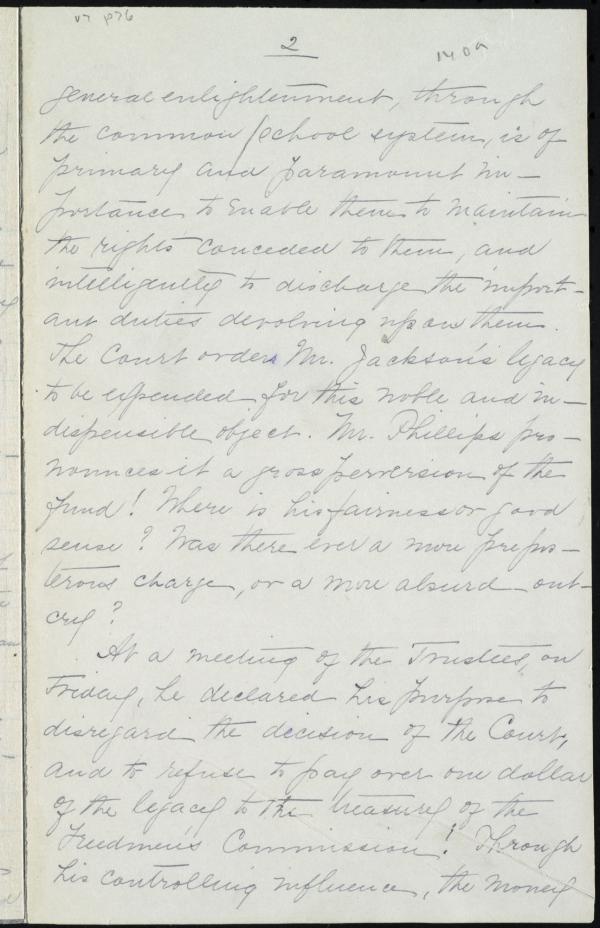 v7 p76
2
140a
general enlightenment, through
the common school system, is of
primary and paramount im-
portance to enable them to maintain
the rights conceded to them, and
intelligently to discharge the import-
ant duties devolving upon them.
The Court orders Mr. Jackson's legacy
to be expended for this noble and in-
dispensible object. Mr. Phillips pro-
nounces it a gross perversion of the
fund! Where is his fairness or good
sense? Was there ever a more prepos-
terous charge, or a more absurd out-
cry?
At a meeting of the Trustees, on
Friday, he declared his purpose to
disregard the decision of the Court,
and to refuse to pay over one dollar
of the legacy to the treasury of the
Freedmen's Commission! Through
his controlling influence, the money